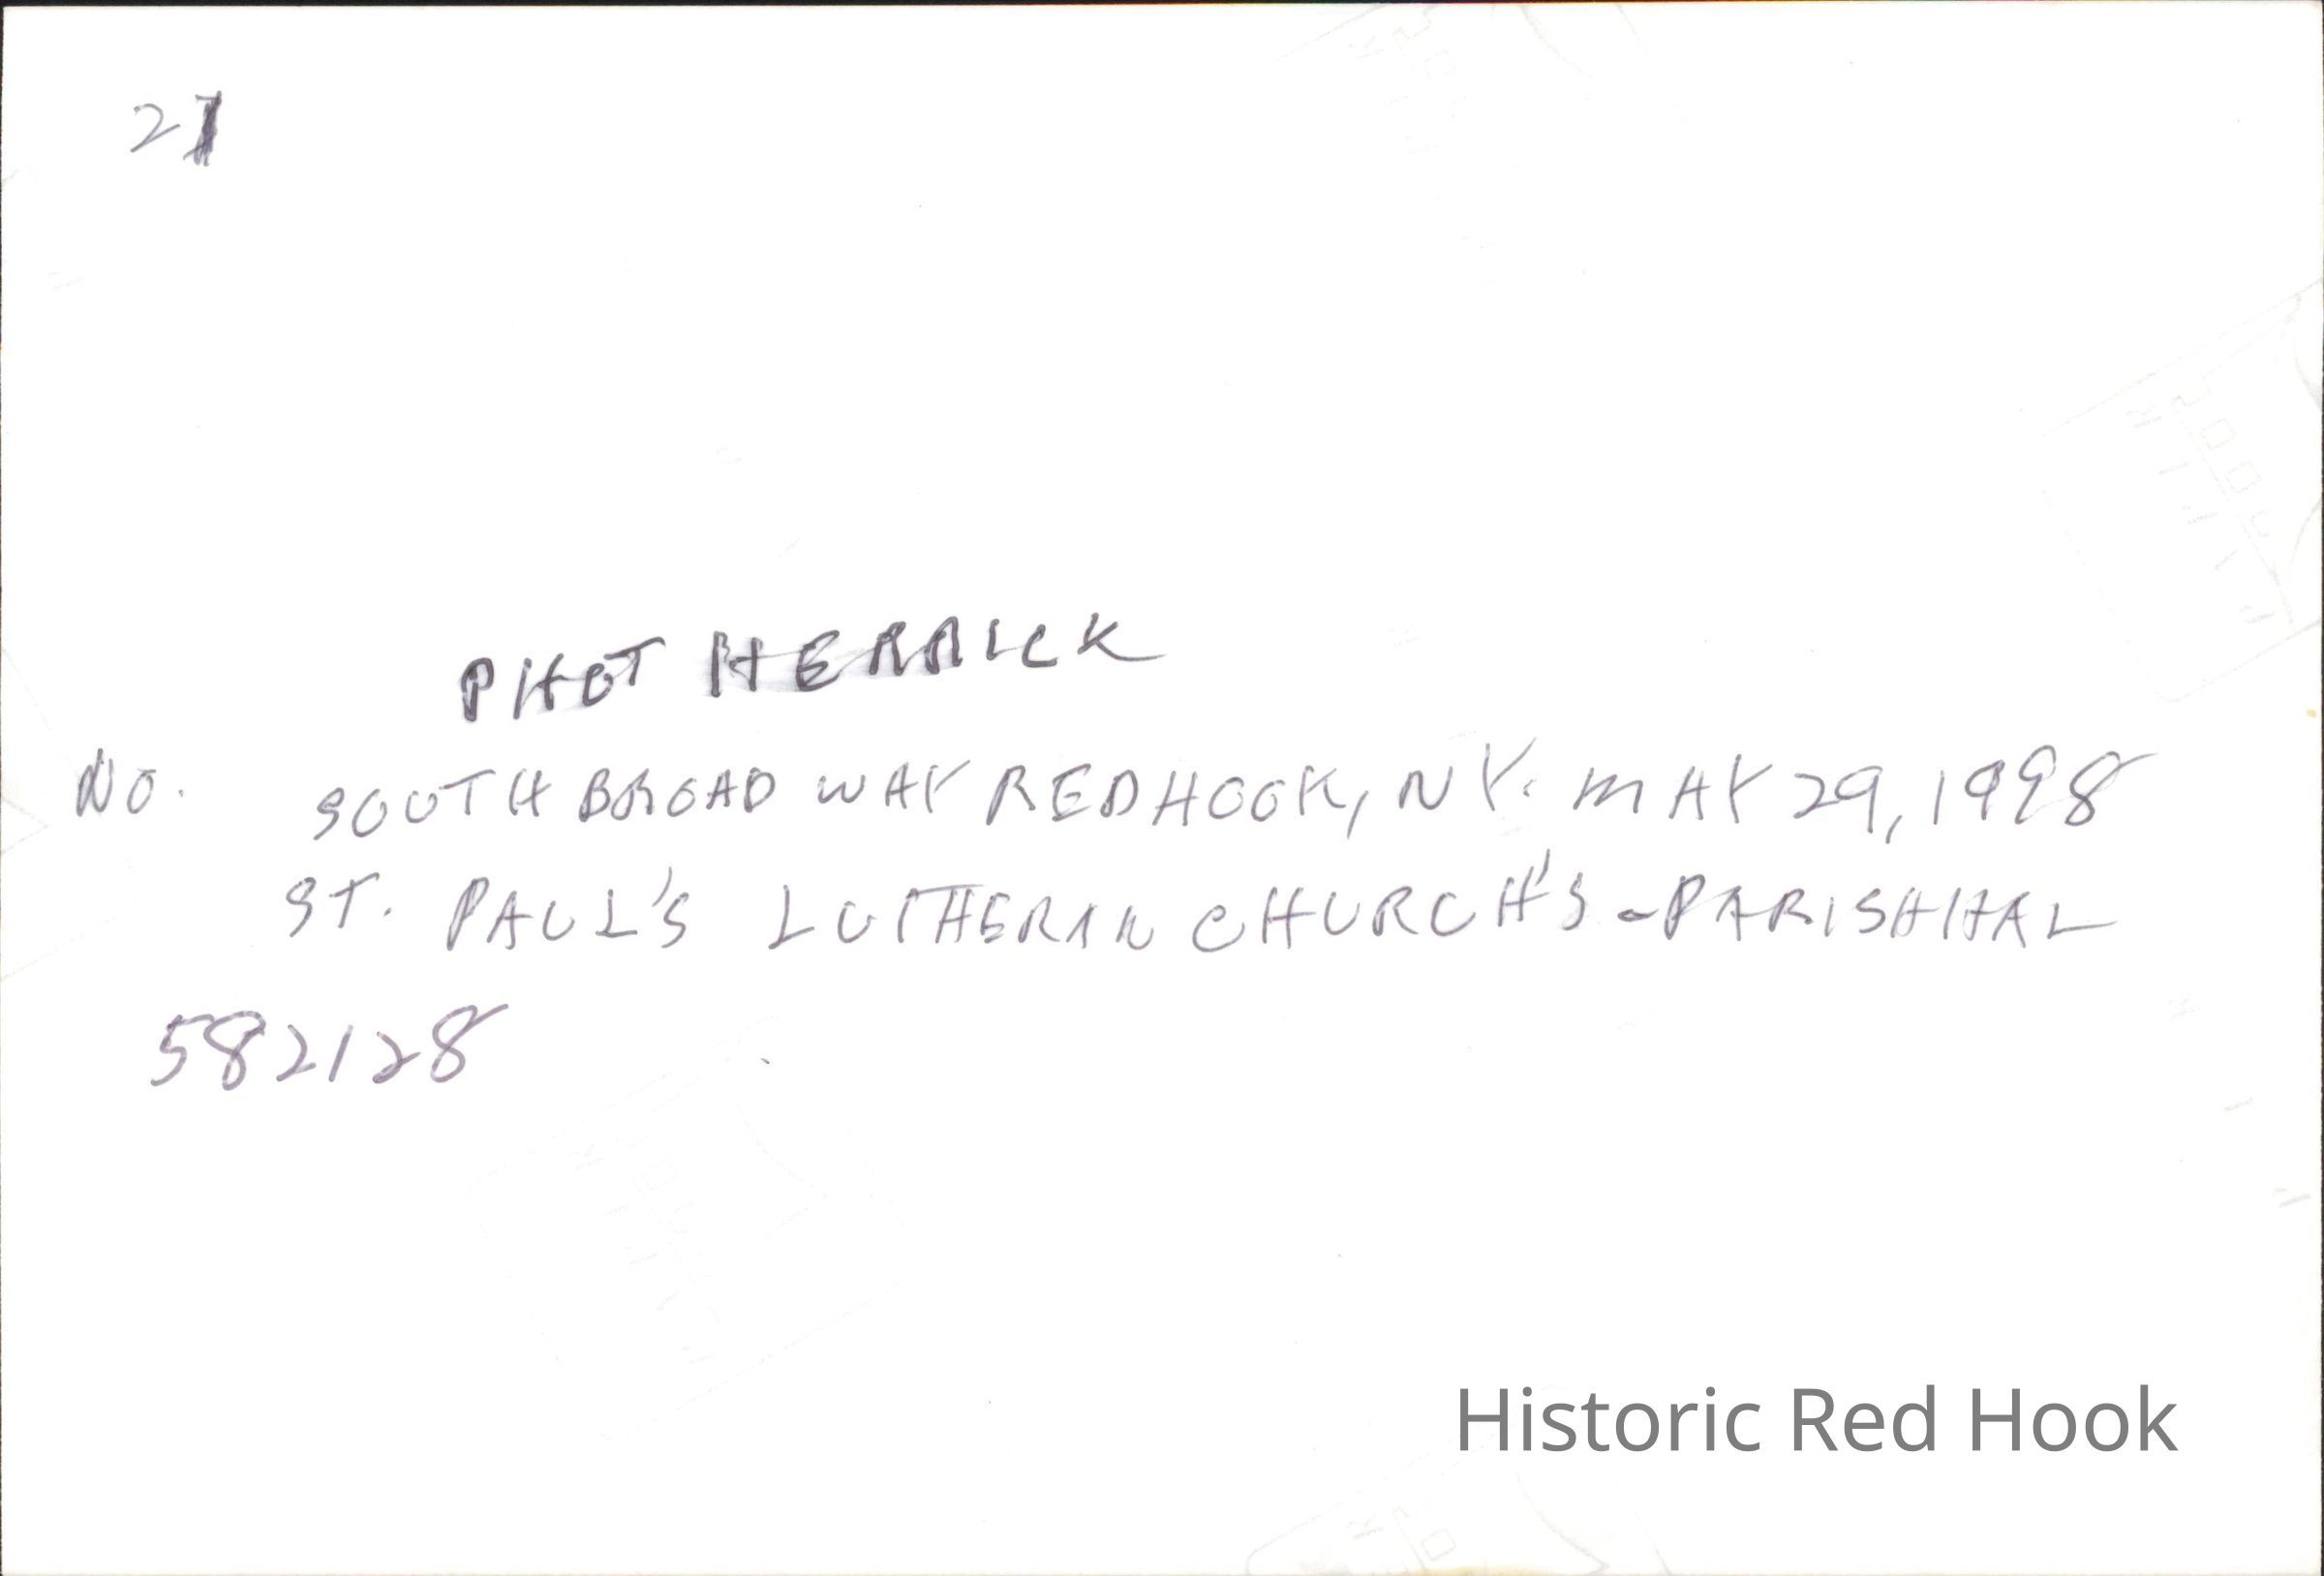 21
PHOT HERRICK
NO. SOUTH BROADWAY RED HOOK, NY. MAY 29, 1998
ST. PAUL'S LUTHERAN CHURCH'S - PARISH HAL
582128
Historic Red Hook